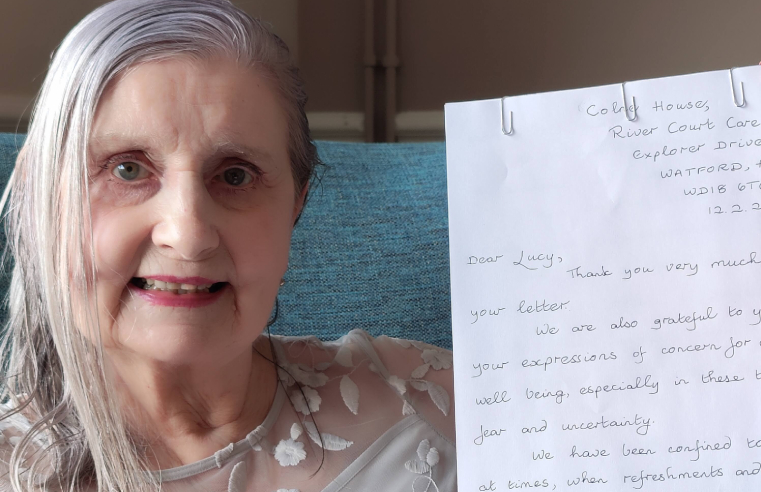 Colne House,
River Court Care
Explorer Drive
WATFORD,
WD18 6T
12.2.2
Dear Lucy,
Thank you very much
your letter.
We are also grateful to y
your expressions of concern for
well being, especially in these t
fear and uncertainty.
We have been confined to
at times, when refreshments and